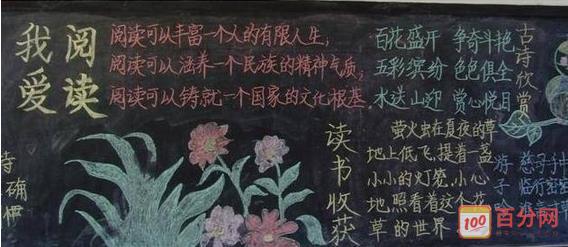 我爱
阅读
阅读可以丰富一个人的有限人生；
阅读可以涵养一个民族的精神气质；
阅读可以铸就一个国家的文化根基。
百花盛开 争奇斗艳
五彩缤纷 色色俱全
水送山迎 赏心悦目
古诗欣赏
读书收获
萤火虫在夏夜的草
地上低飞，提着一盏
小小的灯笼，小心
地照看着这个花
草的世界
游子
慈母手
临行密密
100 百分网